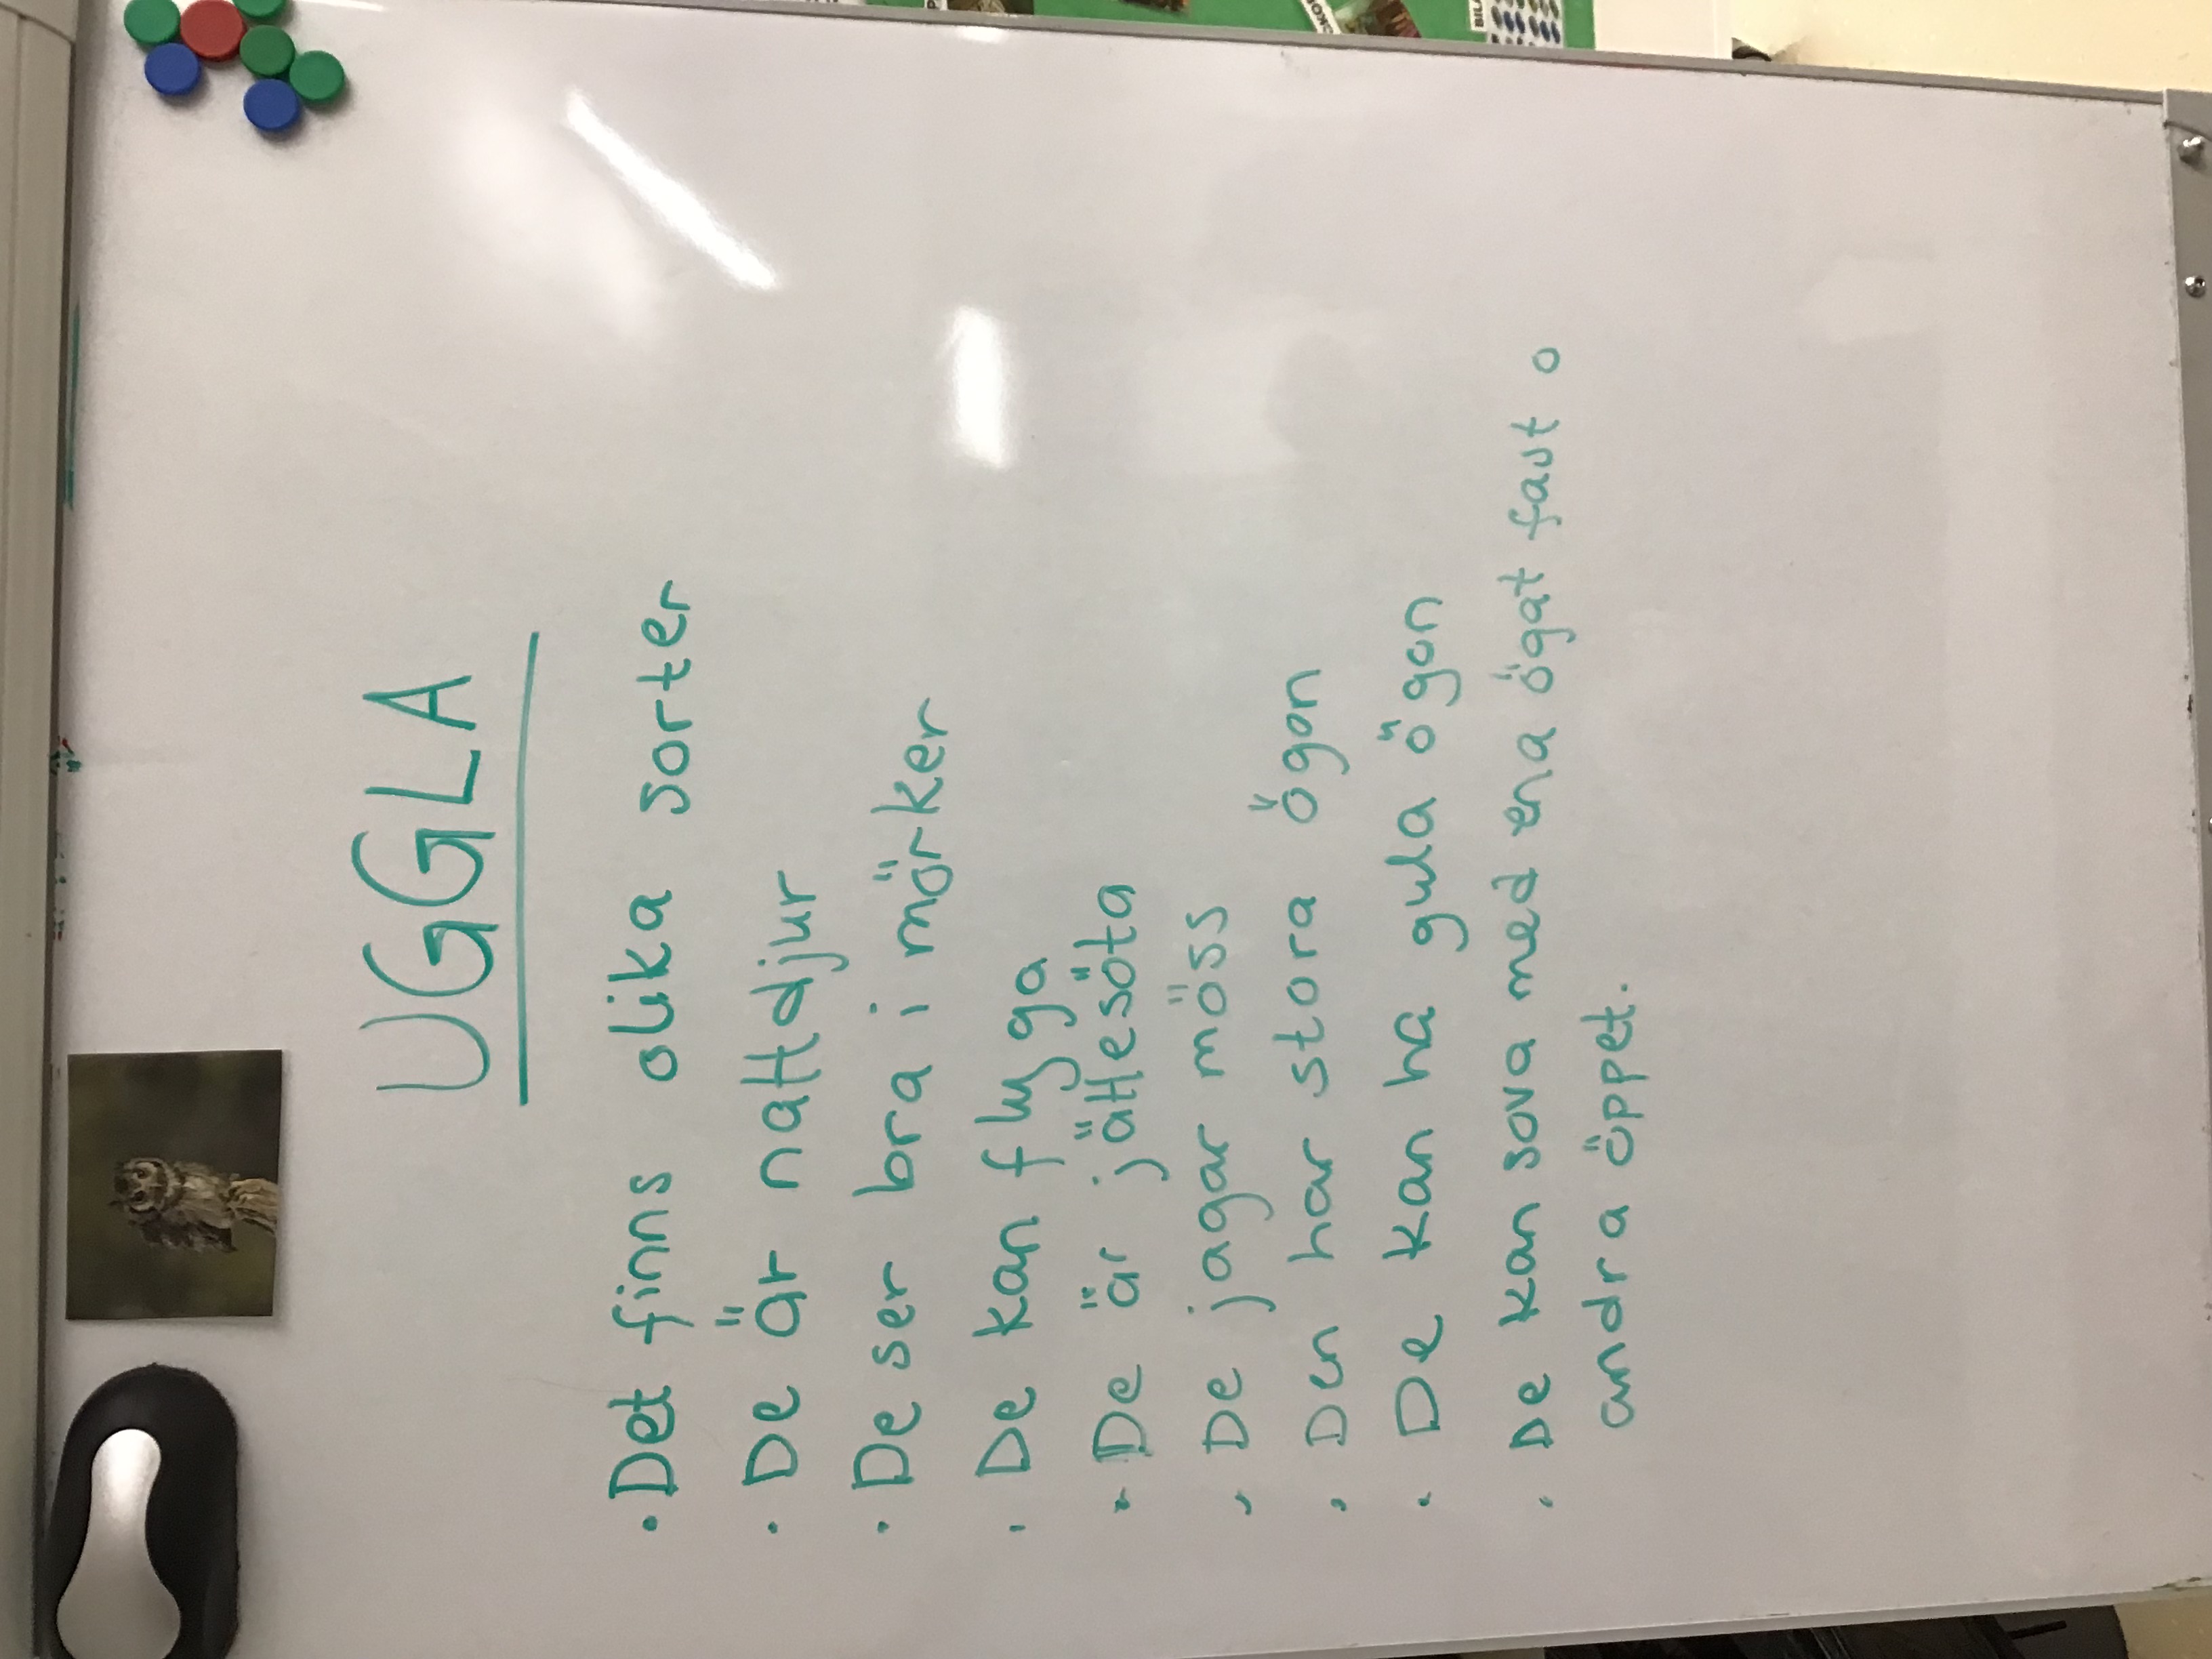 UGGLA
• Det finns olika sorter
• De är nattdjur
• De ser bra i mörker
• De kan flyga
• De är jättesöta
• De jagar möss
• Den har stora ögon
• De kan ha gula ögon
• De kan sova med ena ögat fast o
andra öppet.